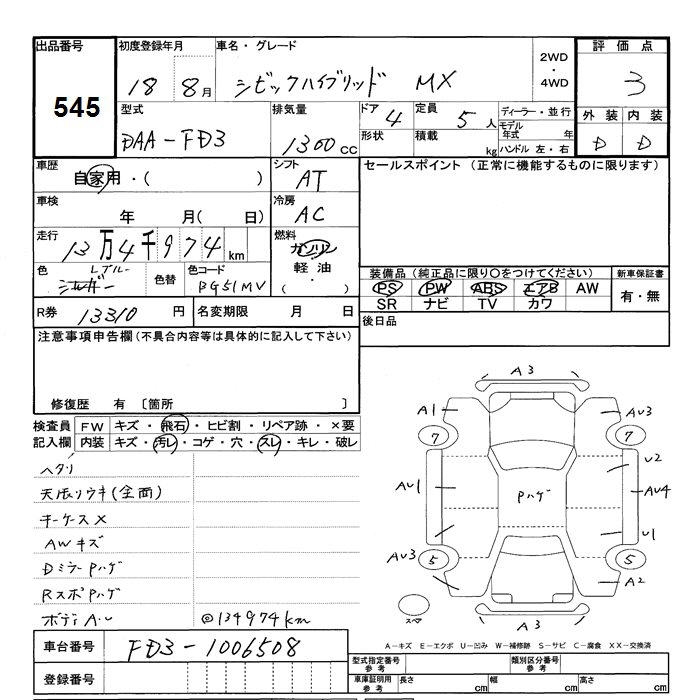 出品番号
545
初度登録年月
18 8月
車名・グレード
シビックハイブリッド MX
2WD
・
4WD
評価点
3
型式
DAA-FD3
排気量
1300cc
ドア 4
形状
定員 5人
積載 kg
ディーラー・並行
モデル年式 年
ハンドル 左・右
外装 内装
D D
車歴
自家用・( )
シフト
AT
セールスポイント (正常に機能するものに限ります)
車検
年 月( 日)
冷房
AC
走行
13万4千974km
燃料
ガソリン
軽油
( ・ )
色
Lブルー
シルバー
色替
色コード
BG51MV
装備品(純正品に限り○をつけてください)
新車保証書
PS PW ABS エアB AW
有・無
SR ナビ TV カワ
R券 13310円
名変期限 月 日
後日品
注意事項申告欄(不具合内容等は具体的に記入して下さい)
修復歴 有 〔箇所 〕
検査員記入欄
FW キズ・飛石・ヒビ割・リペア跡・×要
内装 キズ・汚レ・コゲ・穴・スレ・キレ・破レ
ヘタリ
天張リウキ(全面)
キーケース×
AWキズ
Dミラーpハゲ
Rスポpハゲ
ボディA.U
◎134974km
A3
A1
AU3
7
7
U2
AU1
Pハゲ
AU4
U1
AU3
5
5
A2
スペア
A3
車台番号
FD3-1006508
登録番号
A-キズ E-エクボ U-凹み W-補修跡 S-サビ C-腐食 XX-交換済
型式指定番号
参考
類別区分番号
参考
車庫証明用
参考
長さ cm
幅 cm
高さ cm